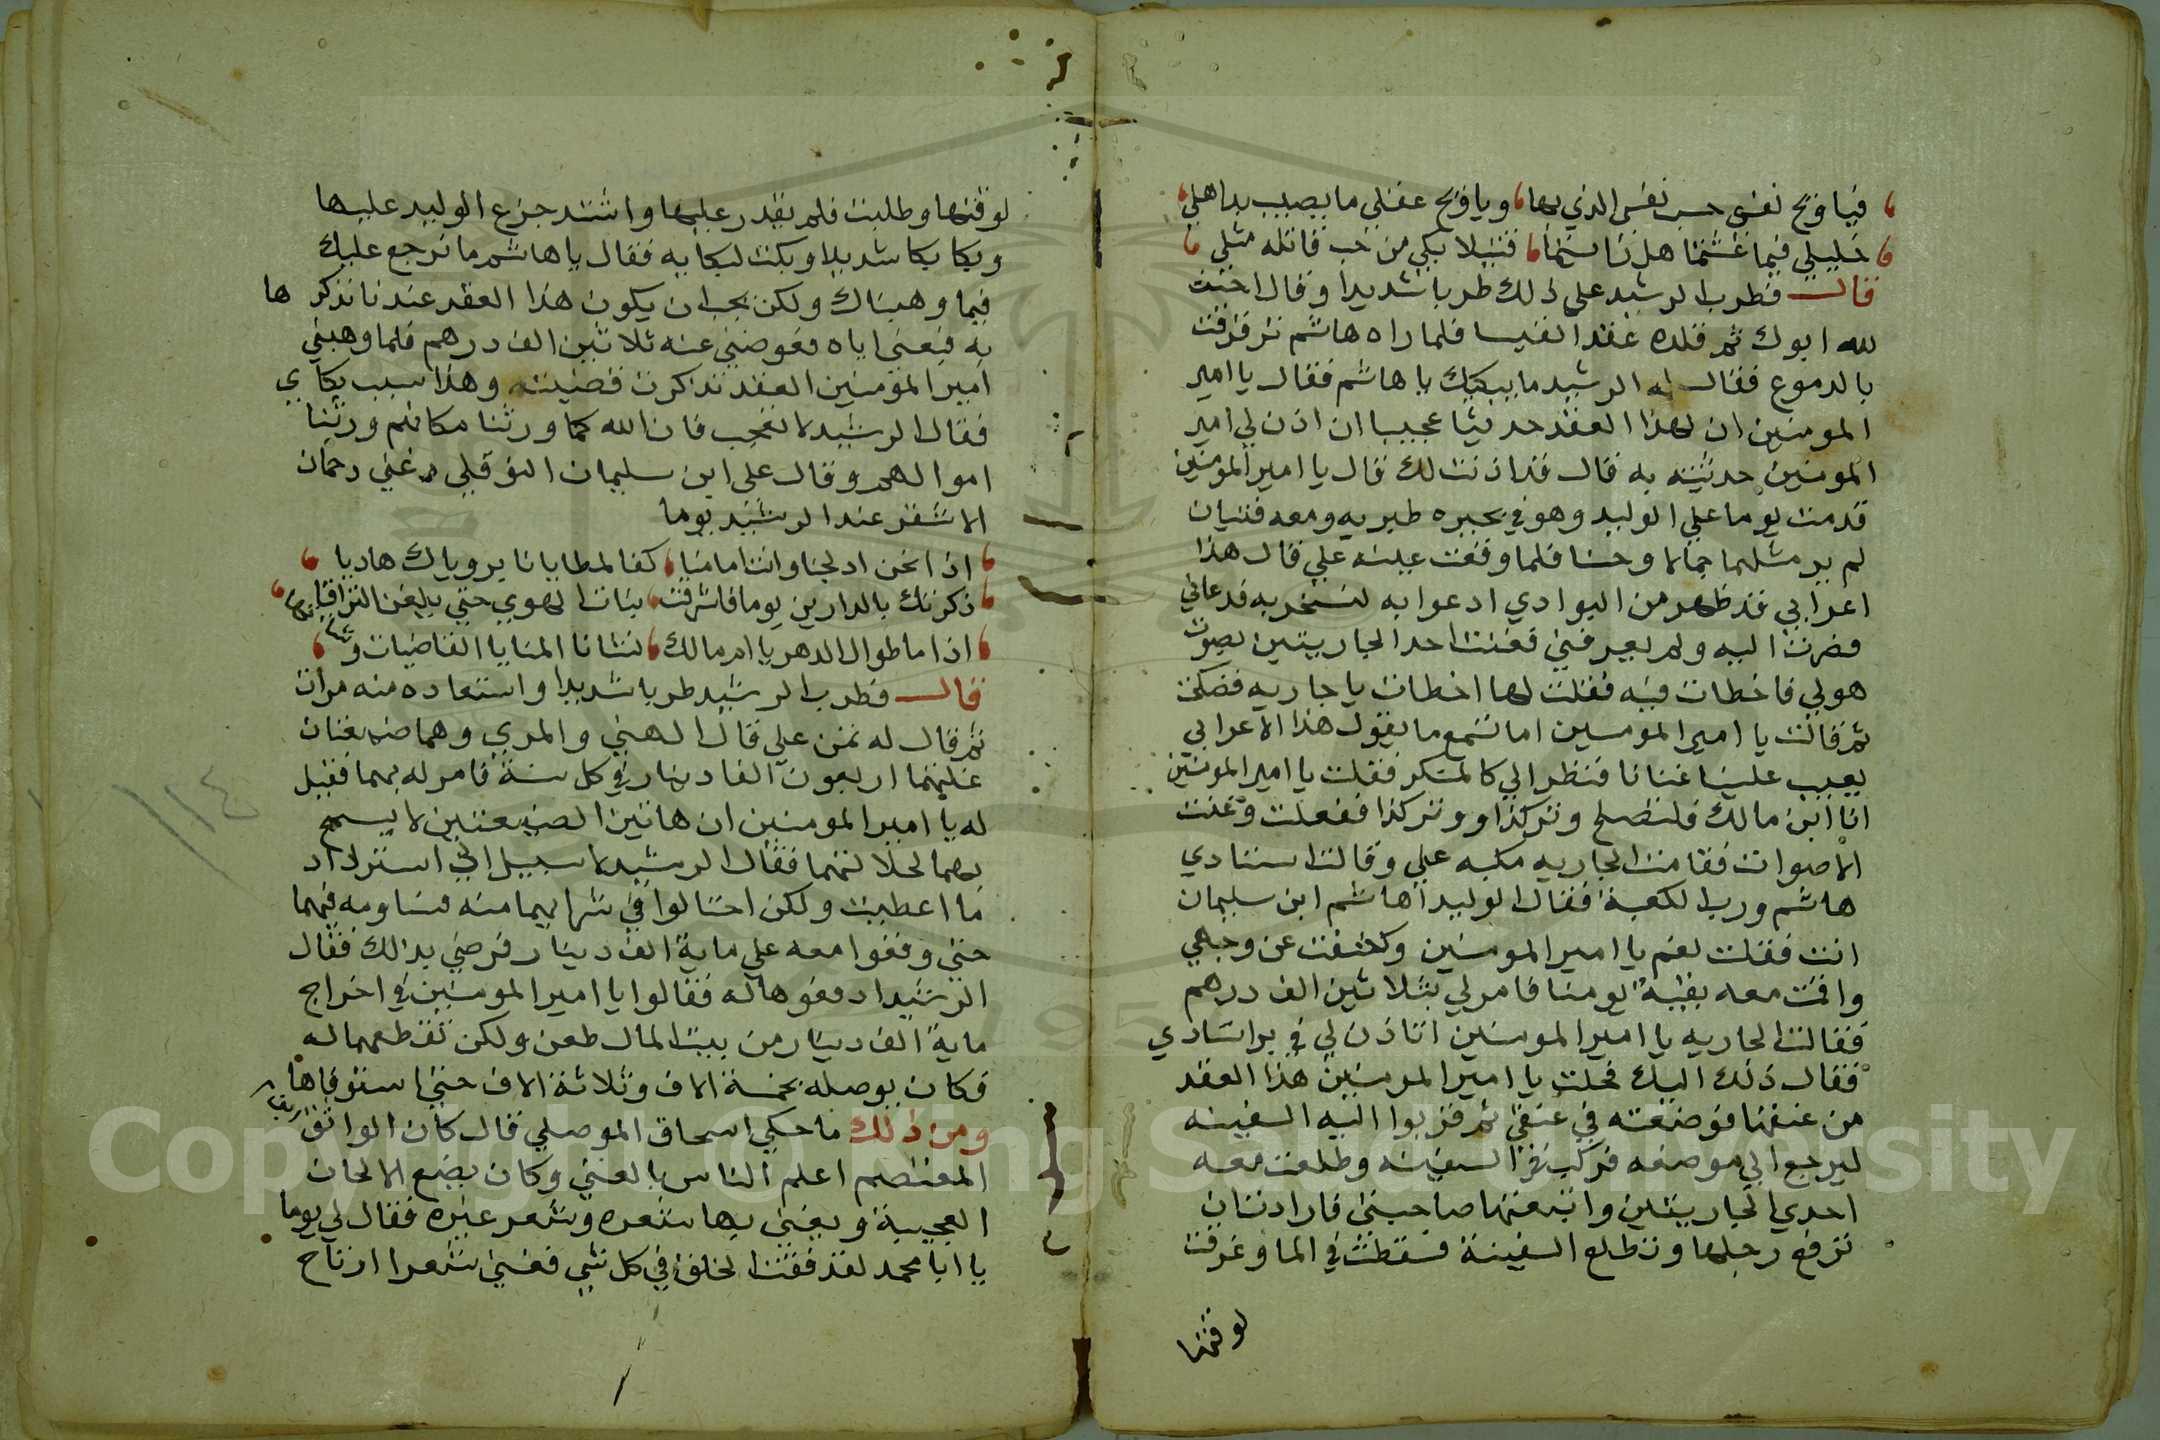 فيا ويح نفسي حسب نفسي الذي بها ويا ويح عقلي ما يصيب به اهلي
خليلي فيما عشتما هل رايتما قتيلا بكي من حب قاتله مثلي
قال فطرب الرشيد علي ذلك طربا شديدا وقال احسنت
لله ابوك ثم قلده عقدا نفيسا فلما راه هاشم ترقرقت
بالدموع فقال له الرشيد ما يبكيك يا هاشم فقال يا امير
المومنين ان لهذا العقد حديثا عجيبا ان اذن لي امير
المومنين حدثته به قال قد اذنت لك قال يا امير المومنين
قدمت يوما علي الوليد وهو في بحيره طبريه ومعه قنتيان
لم ير مثلهما جمالا وحسنا فلما وقعت عينه علي قال هذا
اعرابي قد ظهر من البوادي ادعوا به لنسخر به فدعاني
فصرت اليه ولم يعرفني فغنت احد الجاريتين بصوت
هو لي فاخطات فيه فقلت لها اخطات يا جاريه فضحكت
ثم قالت يا امير المومنين اما تسمع ما يقول هذا الاعرابي
يعيب علينا غنانا فنظر الي كالمنكر فقلت يا امير المومنين
انا ابن مالك فلتصلح وتر كذا ووتر كذا ففعلت وغنت
الاصوات فقامت الجاريه مكبه علي وقالت استادي
هاشم ورب الكعبة فقال الوليد اهاشم ابن سليمان
انت فقلت نعم يا امير المومنين وكشفت عن وجهي
واقمت معه بقية يومنا فامر لي بثلاثين الف درهم
فقالت الجاريه يا امير المومنين اتاذن لي في بر استادي
فقال ذلك اليك فحلت يا امير المومنين هذا العقد
من عنقها فوضعته في عنقي ثم قربوا اليه السفينه
ليرجع الي موضعه فركب في السفينه وطلعت معه
احدي الجاريتين واتبعتها صاحبتي فارادت ان
ترفع رجلها وتطلع السفينة فسقطت في الما وغرقت
لوقتها
لوقتها وطلبت فلم يقدر عليها واشتد جزع الوليد عليها
وبكا بكا شديدا وبكت لبكايه فقال يا هاشم ما نرجع عليك
فيما وهبناك ولكن نحب ان يكون هذا العقد عندنا نذكرها
به فبعني اياه فعوضني عنه ثلاثين الف درهم فلما وهبني
امير المؤمنين العقد تذكرت قضيته وهذا سبب بكاي
فقال الرشيد لا تعجب فان الله كما ورثنا مكانهم ورثنا
اموالهم وقال علي ابن سليمان النوفلي غني دحمان
الاشقر عند الرشيد يوما
اذا نحن ادلجنا وانت امامنا كفا لمطايانا برؤياك هاديا
ذكرتك بالدارين يوما فاشرفت بنات الهوي حتي بلغن التراقيا
اذا ما طواك الدهر يا ام مالك فشانا المنايا القاضيات و
قال فطرب الرشيد طربا شديدا واستعاده منه مرات
ثم قال له تمن علي قال الهني والمري وهما ضيعتان
غلتهما اربعون الفا دينار في كل سنة فامر له بهما فقيل
له يا امير المومنين ان هاتين الضيعتين لا يسمح
بهما لجلالتهما فقال الرشيد لا سبيل الي استرداد
ما اعطيت ولكن احتالوا في شرايهما منه فساومه فيهما
حتي وقفوا معه علي ماية الف دينار فرضي بذالك فقال
الرشيد ادفعوها له فقالوا يا امير المومنين في اخراج
ماية الف دينار من بيت المال طعن ولكن نقطعها له
فكان يوصله بخمسة الاف وثلاثة الاف حتي استوفاها
ومن ذلك ما حكي اسحاق الموصلي قال كان الواثق ابن
المعتصم اعلم الناس بالغني وكان يضع الالحان
العجيبة ويغني بها شعره وشعر غيره فقال لي يوما
يا ابا محمد لقد فقت الخلق في كل شي فغني شعرا ارتاح
١١٤